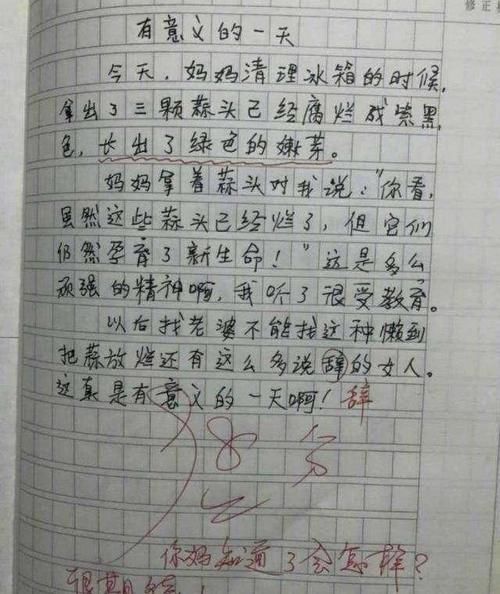 修正
有意义的一天
今天，妈妈清理冰箱的时候，
拿出了三颗蒜头已经腐烂成漆黑
色，长出了绿色的嫩芽。
妈妈拿着蒜头对我说："你看，
虽然这些蒜头已经烂了，但它们
仍然孕育了新生命！"这是多么
顽强的精神啊，我听了很受教育。
以后找老婆不能找这种懒到
把蒜放烂还有这么多说辞的女人。
这真是有意义的一天啊！辞
8分
你妈知道了会怎样？
很期